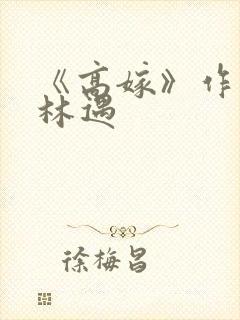 《高嫁》作
林遇
徐梅昌